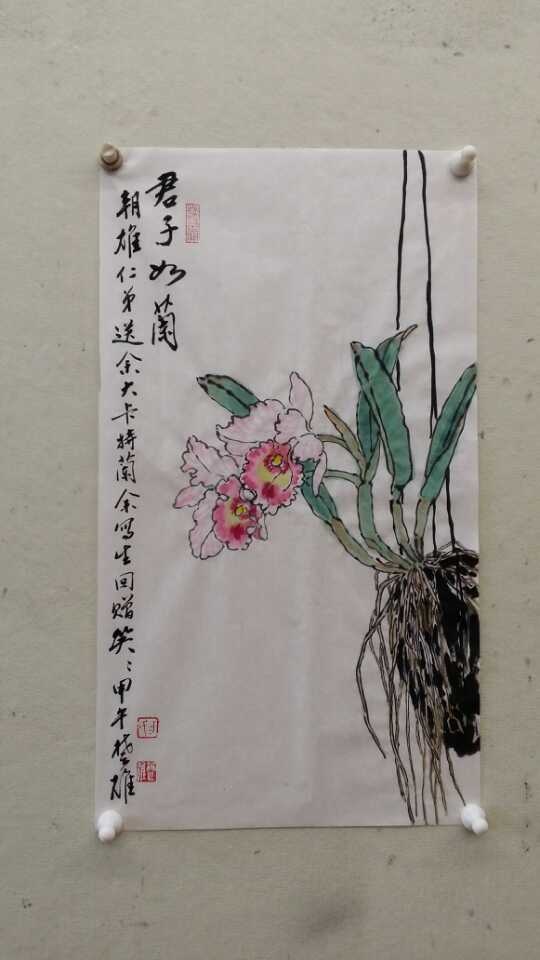 君子如蘭
朝雄仁弟送余大卡特蘭余寫生回贈笑〻甲午楚雄